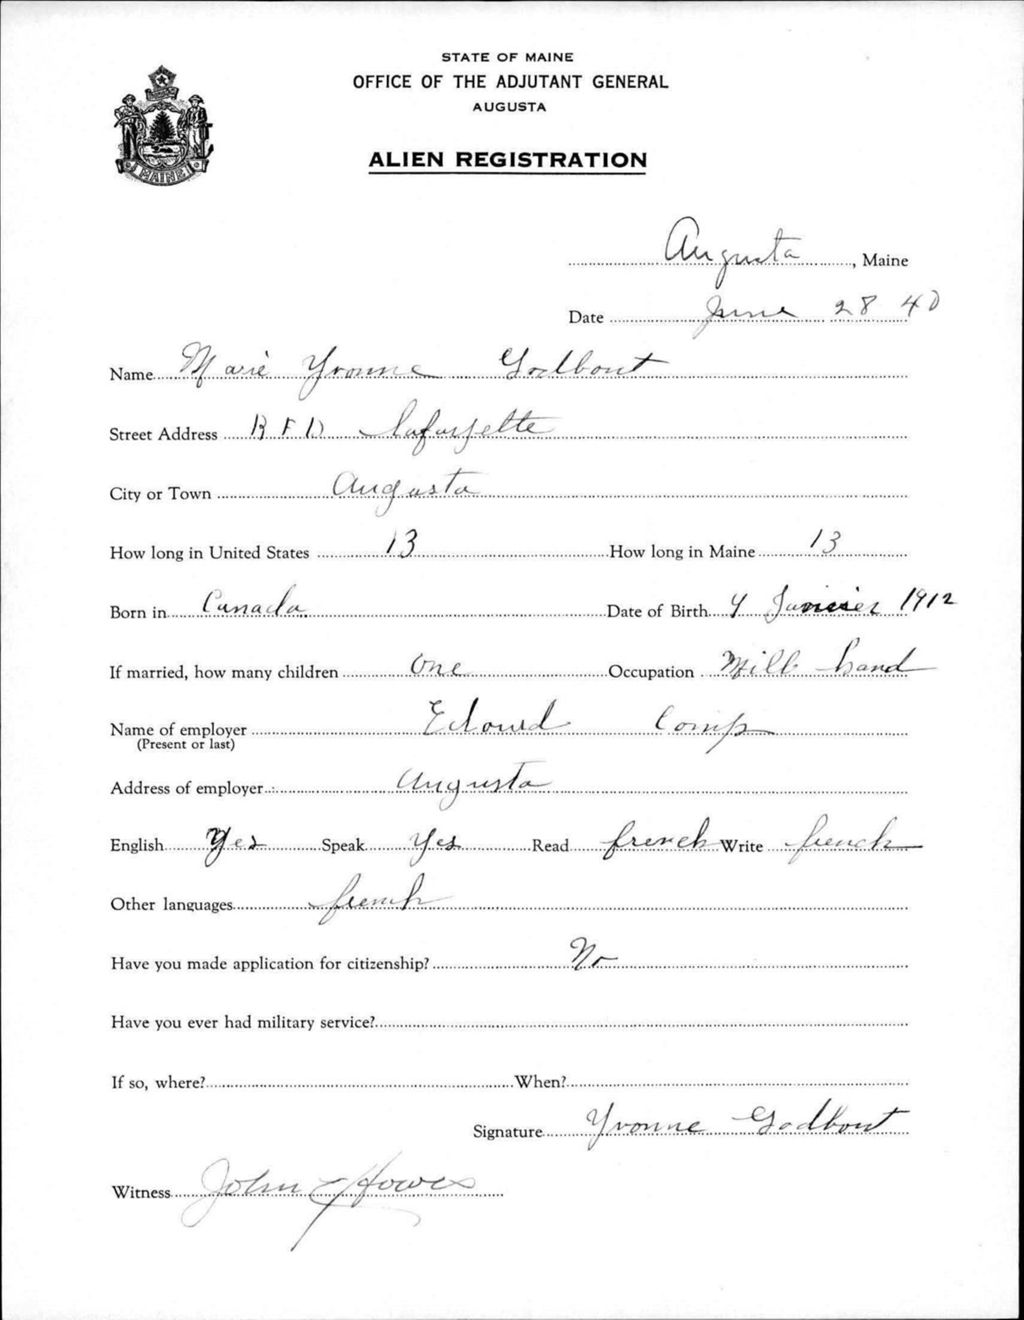 STATE OF MAINE
OFFICE OF THE ADJUTANT GENERAL
AUGUSTA
ALIEN REGISTRATION
MAINE
Augusta, Maine
Date June 28 40
Name Marie Yvonne Godbout
Street Address R F D Lafayette
City or Town Augusta
How long in United States 13 How long in Maine 13
Born in Canada Date of Birth 1912
If married, how many children One Occupation Mill hand
Name of employer Comp
(Present or last)
Address of employer Augusta
English Yes Speak Yes Read french Write french
Other languages french
Have you made application for citizenship? No
Have you ever had military service?
If so, where? When?
Signature Yvonne Godbout
Witness John Howes